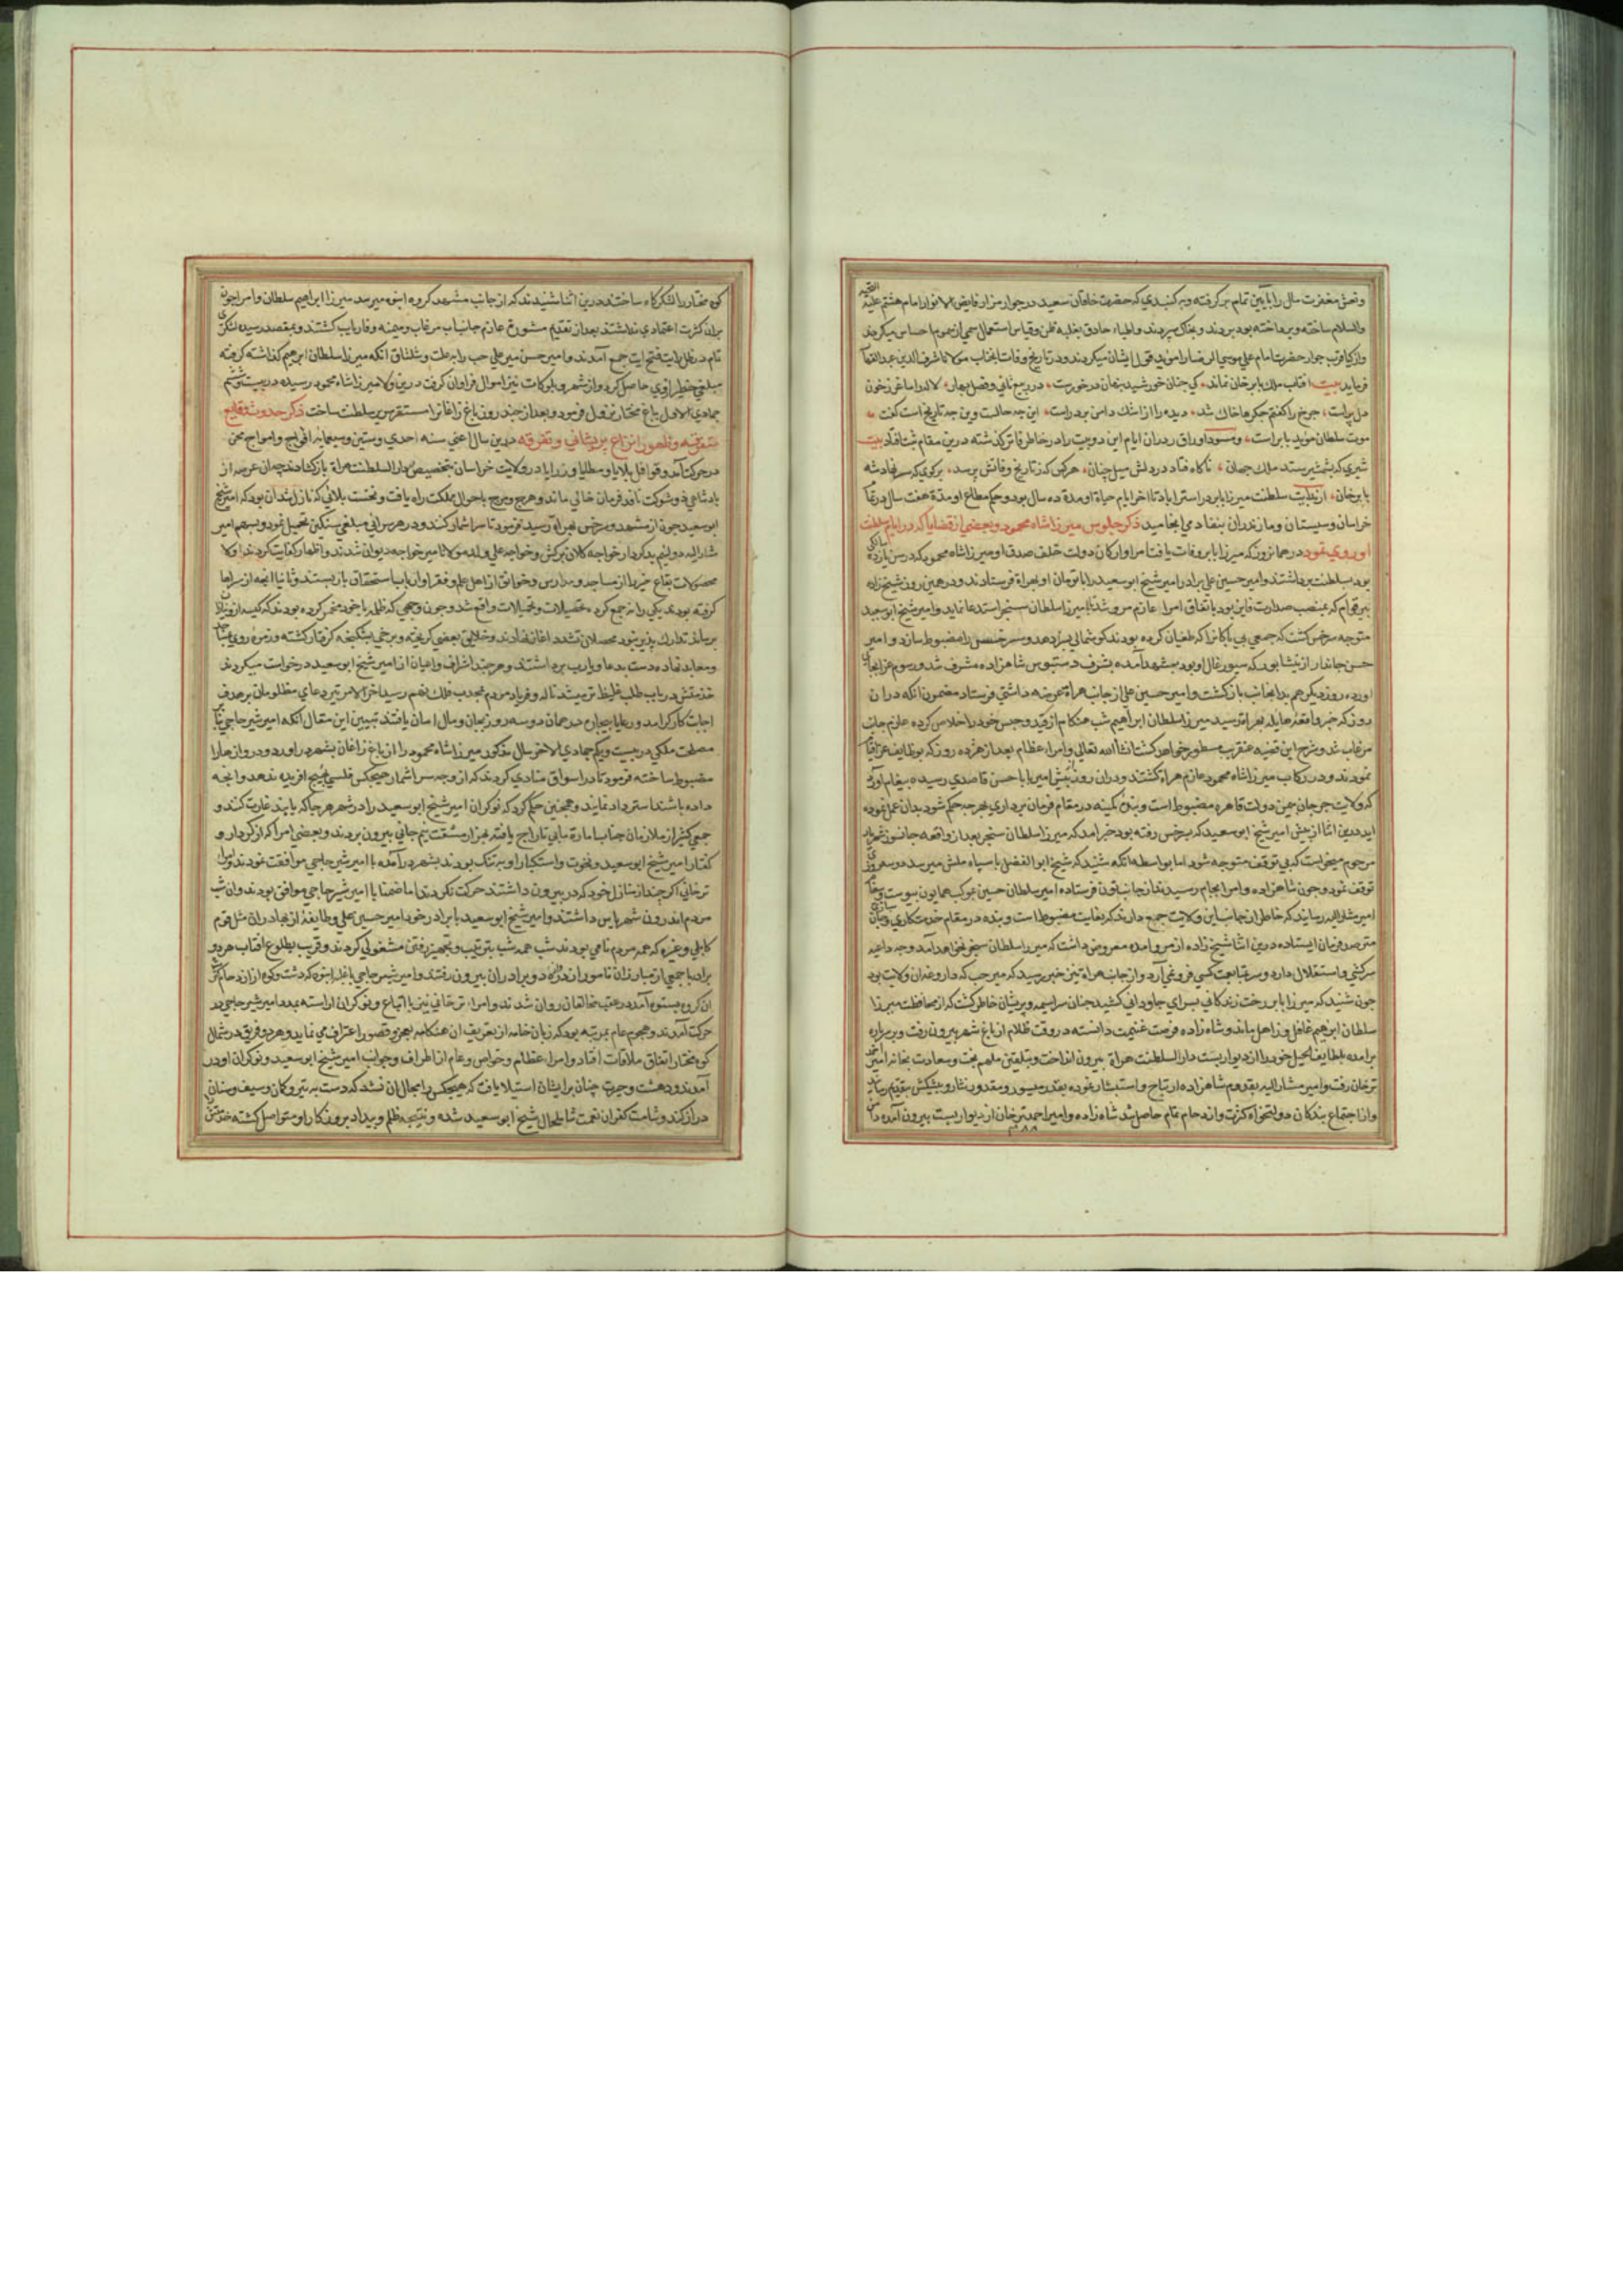 ونعش مغفرت مال را بآیین تمام برکرفته وبرکنبدی که حضرت خاقان سعید در جوار مزار فایض الانوار امام هشتم علیه التحیه
والسلام ساخته وپرداخته بود بردند وبخاک سپردند واطباء حاذق بغلبه ظن وقیاس استعمال سمی از سموم احساس میکردند
قرب جوار حضرت امام علی موسی الرضا را موید قول ایشان میکردند ودر تاریخ وفات انجناب مولانا شرف الدین عبد القهار
فرماید بیت افتاب ملک بابر خان نماند کی جنان خورشید بنهان درخورست در ربیع ثانی وفصل بهار لاله را ساغر زخون
دل پراست جرخ را کفتم جکرها خاک شد دیده را از اشک دامن بر دراست این چه حالست وین چه تاریخ است کفت
موت سلطان موید بابر است ومسود اوراق را دران ایام این دو بیت را در خاطر فاتر کذشته درین مقام ثبت افتاد بیت
شیری که بشمشیر ستد ملک جهان ناکاه فتاد در دلش سیل چنان هرکس که ز تاریخ وفاتش پرسد برکوی که سر نهاد شه
بابر خان از بدایت سلطنت میرزا بابر در استراباد تا اخر ایام حیاة او مدة ده سال بود وحکم مطاع او مدة هفت سال در تمام
خراسان وسیستان ومازندران بنفاد می انجامید ذکر جلوس میرزا شاه محمود وبعضی از قضایا که در ایام سلطنت
او روی نمود در همانروز که میرزا بابر وفات یافت امرا وارکان دولت خلف صدق او میرزا شاه محمود که در سن یازده سالکی
بود بسلطنت برداشتند وامیر حسین علی برادر امیر شیخ ابو سعید را با تومان او بهراة فرستادند ودر همین روز شیخ زاده
پیر قوام که بمنصب صدارت فایز بود باتفاق امرا عازم مرو شد تا میرزا سلطان سنجر استدعا نماید وامیر شیخ ابو سعید
متوجه سرخس کشت که جمعی بی باکانرا که طغیان کرده بودند کوشمالی بسزا دهد وسرخس را مضبوط سازد وامیر
حسن جاندار از نیشابور که سیورغال او بود بمشهد آمده بشرف دستبوس شاهزاده مشرف شد ورسوم عزا بجای
اورده روز دیکر هم بدانجانب بازکشت وامیر حسین علی از جانب هراة عرضه داشتی فرستاد مضمون انکه دران
روز که خبر واقعه هایله بهراة رسید میرزا سلطان ابراهیم شب هنکام از قید وحبس خود را خلاص کرده عازم جانب
مرغاب شد وشرح این قضیه عنقریب مسطور خواهد کشت انشأ الله تعالی وامراء عظام بعد از هژده روز که بوظایف عزا قیام
نمودند ودر رکاب میرزا شاه محمود عازم هراة کشتند ودران روز پیش امیر بابا حسن قاصدی رسیده پیغام اورد
که ولایت جرجان بیمن دولت قاهره مضبوط است وبنده کمینه در مقام فرمان برداری بهرچه حکم شود بدان عمل نموده
اید درین اثنا از پیش امیر شیخ ابو سعید که بسرخس رفته بود خبر امد که میرزا سلطان سنجر بعد از واقعه جانسوز شهریار
مرحوم میخواست که بی توقف متوجه شود اما بواسطه انکه شنید که شیخ ابو الفضل با سپاه میرسد دو سه روزی
توقف نمود وچون شاهزاده وامرا بجام رسیدند از جانب فرستاده امیر سلطان حسین بموکب همایون پیوست وبعرض
امیر مشار الیه رسانید که خاطر ان جناب این ولایت جمع دارند که بغایت مضبوط است وبنده در مقام خدمتکاری
مترصد فرمان ایستاده درین اثنا شیخ زاده از مرو امده معروض داشت که میرزا سلطان سنجر نخواهد آمد وجه داعیه
سرکشی واستقلال دارد وسر بمتابعت کسی فرو نمی آرد واز جانب هراة نیز خبر رسید که میر حب که داروغه ان ولایت بود
چون شنید که میرزا بابر رخت زندکانی بسرای جاودانی کشید چنان سراسیمه وپریشان خاطر کشت که از محافظت میرزا
سلطان ابرهیم غافل وذاهل بماند وشاه زاده فرصت غنیمت دانسته در وقت ظلام از باغ شهر بیرون رفت وبر باره
برآمده بلطایف الحیل خود را از دیوار بست دار السلطنت هراة بیرون انداخت وبتلقین ملهم بخت وسعادت بخانه امیر احمد
ترخان رفت وامیر مشار الیه بقدوم شاهزاده ارتیاح واستبشار نموده بقدر میسور ومقدور نثار وپیشکش بتقدیم رسانید
وازا اجتماع بندکان دولتخواه کثرت وازدحام تمام حاصل شد شاه زاده وامیر احمد ترخان از دیوار بست بیرون آمده
کوه مختار را لشکرکاه ساختند درین اثنا شنیدند که از جانب مشهد کروه انبوه میرسد میرزا ابراهیم سلطان وامرا چون
بران کثرت اعتمادی نداشتند بعد از تقدیم مشورة عازم جانب مرغاب ومیمنه وفاریاب کشتند وبمقصد رسیده لشکری
تمام در ظل رایت فتح ایت جمع آمدند وامیر حسن میر علی حب را بعلت انکه میرزا سلطان ابرهیم کذاشته کرفته
مبلغی خطیر از وی حاصل کرد واز شهر وبلوکات نیز اموال فراوان کرفت درین ولا میرزا شاه محمود رسیده در بیست وششم
جمادی الاول بباغ مختار نزول فرمود وبعد از چند روز باغ زاغانرا مستقر سریر سلطنت ساخت ذکر حدوث وقایع
متفرقه وظهور انواع پریشانی وتفرقه درین سال اعنی سنه احدی وستین وثمانمایه افواج وامواج محن
در حرکت آمد وقوافل بلایا ومطایا ورزایا در ولایت خراسان بتخصیص دار السلطنت هراة بار کشادند چه ان عرصه از
پادشاهی ذو شوکت نافذ فرمان خالی ماند وهرج ومرج باحوال مملکت راه یافت ونخست بلائی که نازل شد ان بود که امیر شیخ
ابو سعید چون از مشهد وسرخس بهراة رسید فرمود تا سرا شمار کنند ودر هر سرائی مبلغی سنکین تحمیل نمود وبسهم امیر
مشار الیه بدکردار خواجه کلان برکش وخواجه علی ولد مولانا میر خواجه دیوان شدند واظهار کفایت کردند اولا
محصولات بقاع خیر را از مساجد ومدارس وخوانق از اهل علم وفقرا وارباب استحقاق باز بستند وثانیا آنچه از سراها
کرفته بودند یکی را نیز جمع کرده تحصیلات وتحمیلات واقع شد وچون وجهی که ظلمه با خود مخمر کرده بودند که کیسه
برسانند تدارک پذیر نبود محصلان تشدد اغاز نهادند وخلایق بعضی کریخته وبرخی بشکنجه کرفتار کشته وزمره روی بمساجد
ومعابد نهاده دست بدعا ویارب برداشتند وهرچند اشراف واعیان از امیر شیخ ابو سعید درخواست میکردند
خدمتش در باب طلب غلیظ تر میشد ناله وفریاد مردم بمحدب فلک نهم رسید اخر الامر تیر دعای مظلومان بر هدف
اجابت کارکر آمد ورعایا بیچاره در همان دو سه روز بجان ومال امان یافتند تبیین این مقال انکه امیر شیر حاجی بنابر
مصلحت ملکی در بیست ویکم جمادی الاخر سال مذکور میرزا شاه محمود را از باغ زاغان بشهر در اورد ودروازها را
مضبوط ساخته فرمود تا در اسواق منادی کردند که از وجه سر اشمار هیچکس فلسی بهیچ آفریده ندهد وآنچه
داده باشند استرداد نمایند وهمچنین حکم کرد که نوکران امیر شیخ ابو سعید را در شهر هر جا که یابند غارت کنند و
جمعی کثیر از ملازمان جناب امارة مآبی تاراج یافته بهزار مشقت نیم جانی بیرون بردند وبعضی امرا که از کردار و
کفتار امیر شیخ ابو سعید ونخوت واستکبار او به تنک بودند بشهر درآمده با امیر شیر حاجی موافقت نمودند وامراء
ترخانی اکرچه از منازل خود که در بیرون داشتند حرکت نکردند اما ضمنا با امیر شیر حاجی موافق بودند وان شب
مردم اندرون شهر پاس داشتند وامیر شیخ ابو سعید با برادر خود امیر حسین علی وطایفه از بهادران مثل قوم
کابلی وغیره که همه مردم نامی بودند شب همه شب بترتیب وتجهیز رفتن مشغولی کردند وقریب بطلوع افتاب هر دو
برادر با جمعی از مبارزان نامور از دروازه دو برادران بیرون رفتند وامیر شیر حاجی با غلبه انبوه که دشت وکوه از ازدحام
ان کروه بستوه آمد در عقب مخالفان روان شدند وامراء ترخانی نیز با اتباع ونوکران اراسته بمدد امیر شیر حاجی در
حرکت آمدند وهجوم عام بمرتبه بود که زبان خامه از تعریف ان هنکامه بعجز وقصور اعتراف می نماید وهر دو فریق در شمال
کوه مختار اتفاق ملاقات افتاد وامراء عظام وخواص وعام از اطراف وجوانب امیر شیخ ابو سعید ونوکران او در
آمدند ودهشت وحیرت چنان بر ایشان استیلا یافت که هیچکس را مجال ان نشد که دست به تیر وکمان وسیف وسنان
دراز کند وشامت کفران نعمت شامل حال شیخ ابو سعید شده ونتیجه ظلم وبیداد بروزکار او متواصل کشته خدمتش